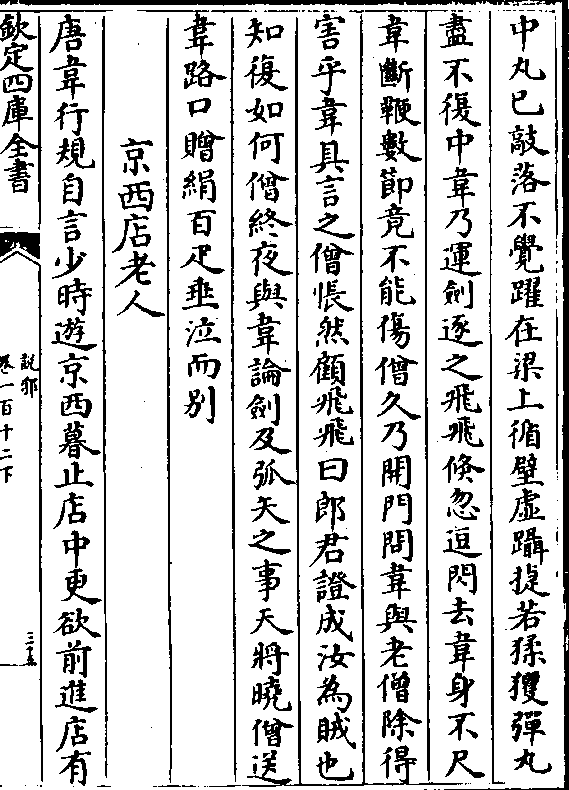 中丸已敲落不覺躍在梁上循壁虛躡捷若猱玃彈丸
盡不復中韋乃運劍逐之飛飛倏忽逗閃去韋身不尺
韋斷鞭數節竟不能傷僧久乃開門問韋與老僧除得
害乎韋具言之僧悵然顧飛飛曰郎君證成汝為賊也
知復如何僧終夜與韋論劍及弧矢之事天將曉僧送
韋路口贈絹百疋垂泣而別
京西店老人
唐韋行規自言少時遊京西暮止店中更欲前進店有
欽定四庫全書
說郛
卷一百十二下
三十五